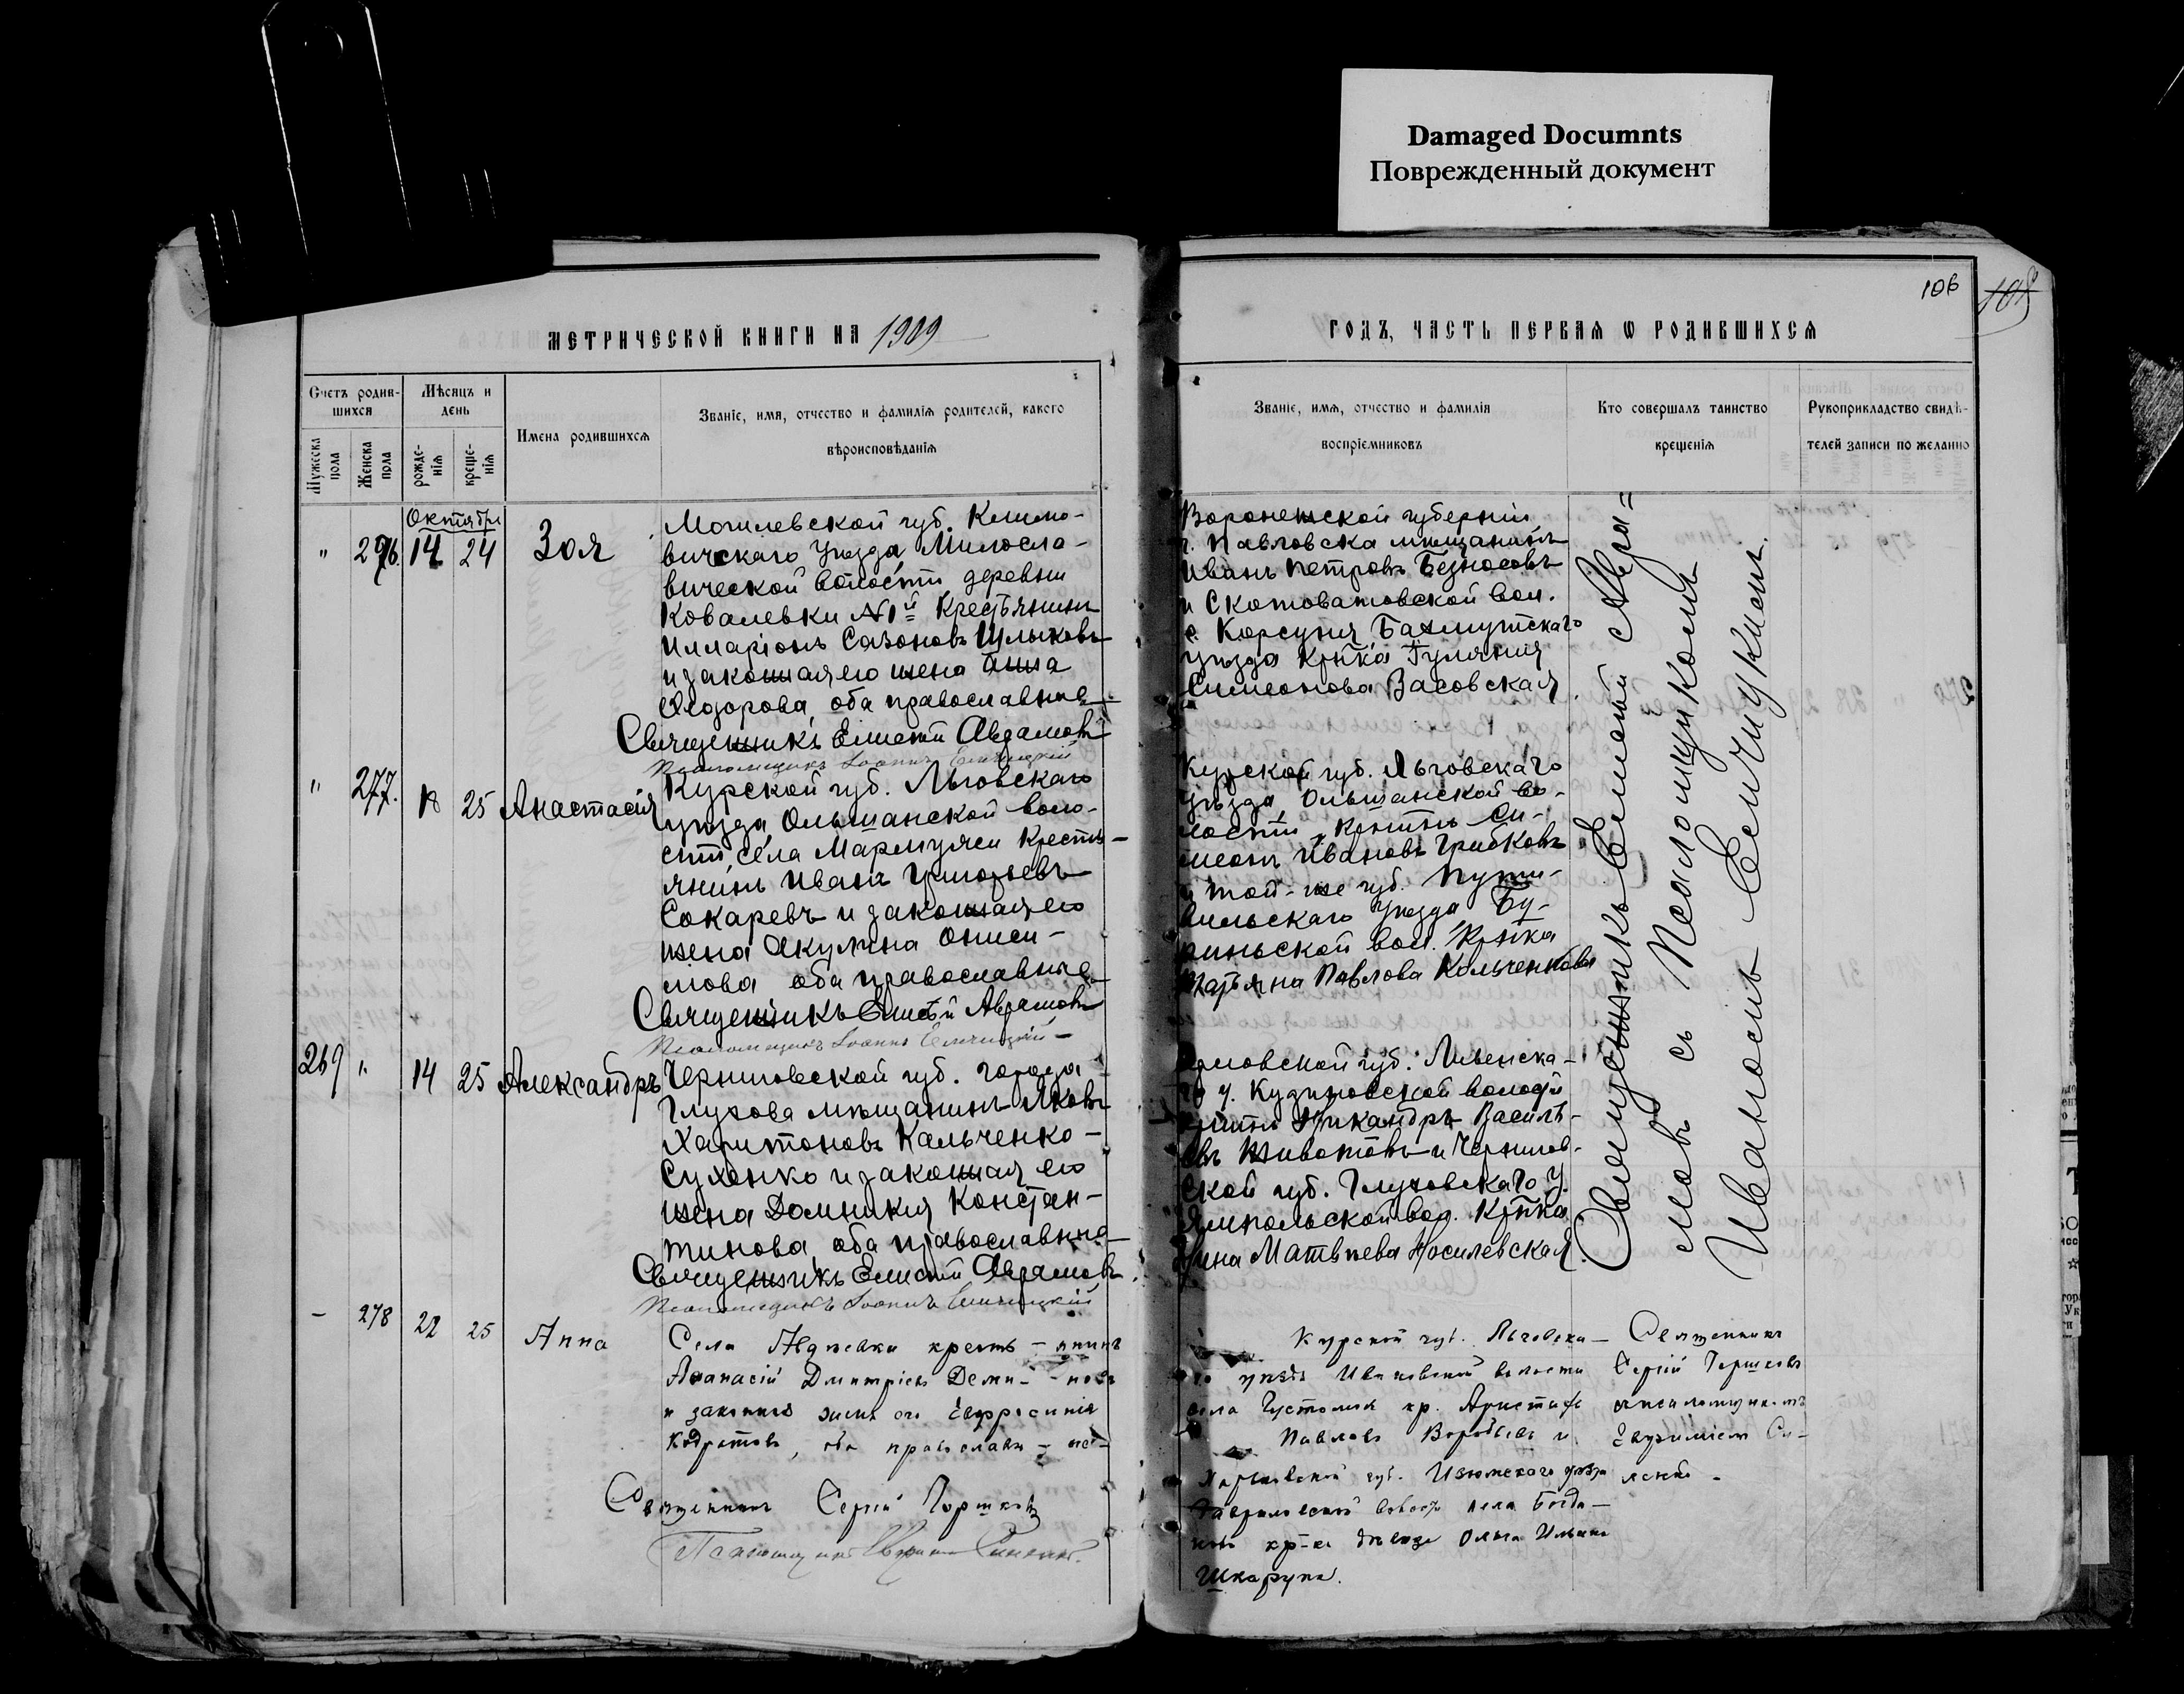 Damaged Documnts
Поврежденный документ
106
МЕТРИЧЕСКОЙ КНИГИ НА 1909
ГОДЪ, ЧАСТЬ ПЕРВАЯ Ѡ РОДИВШИХСЯ
Счетъ родив-
шихся
Мужеска пола
Женска пола
Мѣсяцъ и
день
рожде-
нія
креще-
нія
Имена родившихся
Званіе, имя, отчество и фамилія родителей, какого
вѣроисповѣданія
Званіе, имя, отчество и фамилія
воспріемниковъ
Кто совершалъ таинство
крещенія
Рукоприкладство свидѣ-
телей записи по желанію
Октябрь
" 276. 14 24 Зоя
Могилевской губ. Климо-
вичскаго уѣзда, Милосла-
вической волости деревни
Ковалевки №1й крестьянинъ
Илларіонъ Сазоновъ Шлыковъ
и законная его жена Анна
Ѳеодорова, оба православные
Священникъ Елисей Авраамовъ
Псаломщикъ Іоаннъ
Воронежской губерніи
г. Павловска мѣщанинъ
Иванъ Петровъ Безносовъ
и Скотоватовской вол.
с. Корсуня Бахмутскаго
уѣзда кр-нка Гуляния
Симеонова Васовская
" 277. 18 25 Анастасія
Курской губ. Льговскаго
уѣзда, Ольшанской воло-
сти, села Мармужи кресть-
янинъ Иванъ Григорьевъ
Сокаревъ и законная его
жена Акулина Ониси-
мова оба православные
Священникъ Елисей Авраамовъ
Псаломщикъ Іоаннъ
Курской губ. Льговскаго
уѣзда, Ольшанской во-
лости, кр-нинъ Си-
меонъ Ивановъ Грибковъ
и той-же губ. Пути-
вльскаго уѣзда Бу-
рынской вол. кр-нка
Татьяна Павлова Кольченкова
269 " 14 25 Александръ
Черниговской губ. города
Глухова мѣщанинъ Яковъ
Харитоновъ Кальченко-
Сухенко и законная его
жена Домникія Констан-
тинова оба православные
Священникъ Елисей Авраамовъ
Псаломщикъ Іоаннъ
Орловской губ. Ливенска-
го у. Кудиновской волости
кр-нинъ Никандръ Василь-
евъ Животовъ и Чернигов-
ской губ. Глуховскаго у.
Ямпольской вол. кр-нка
Анна Матвѣева Носилевская
Священникъ Елисей Авраа=
мовъ съ Псаломщикомъ
Іоанномъ
- 278 22 25 Анна
Села Авдѣевки кресть-янинъ
Аѳанасій Дмитріевъ Деми- -новъ
и законная жена его Евфросинія
Кодратова, оба православн-ые-
Священникъ Сергій Горшковъ
Псаломщикъ
Курской губ. Льговска-
го уѣзда Ивановской волости
села Густомоя кр. Аристафъ
Павловъ Воробьевъ и
Харьковской губ. Изюмскаго уѣзда
Гавриловской волости села Богда-
нова кр-ка дѣвица Ольга Ильина
Шкарупа.
Священникъ
Сергій Горшковъ
съ псаломщикомъ
Евфиміемъ Си-